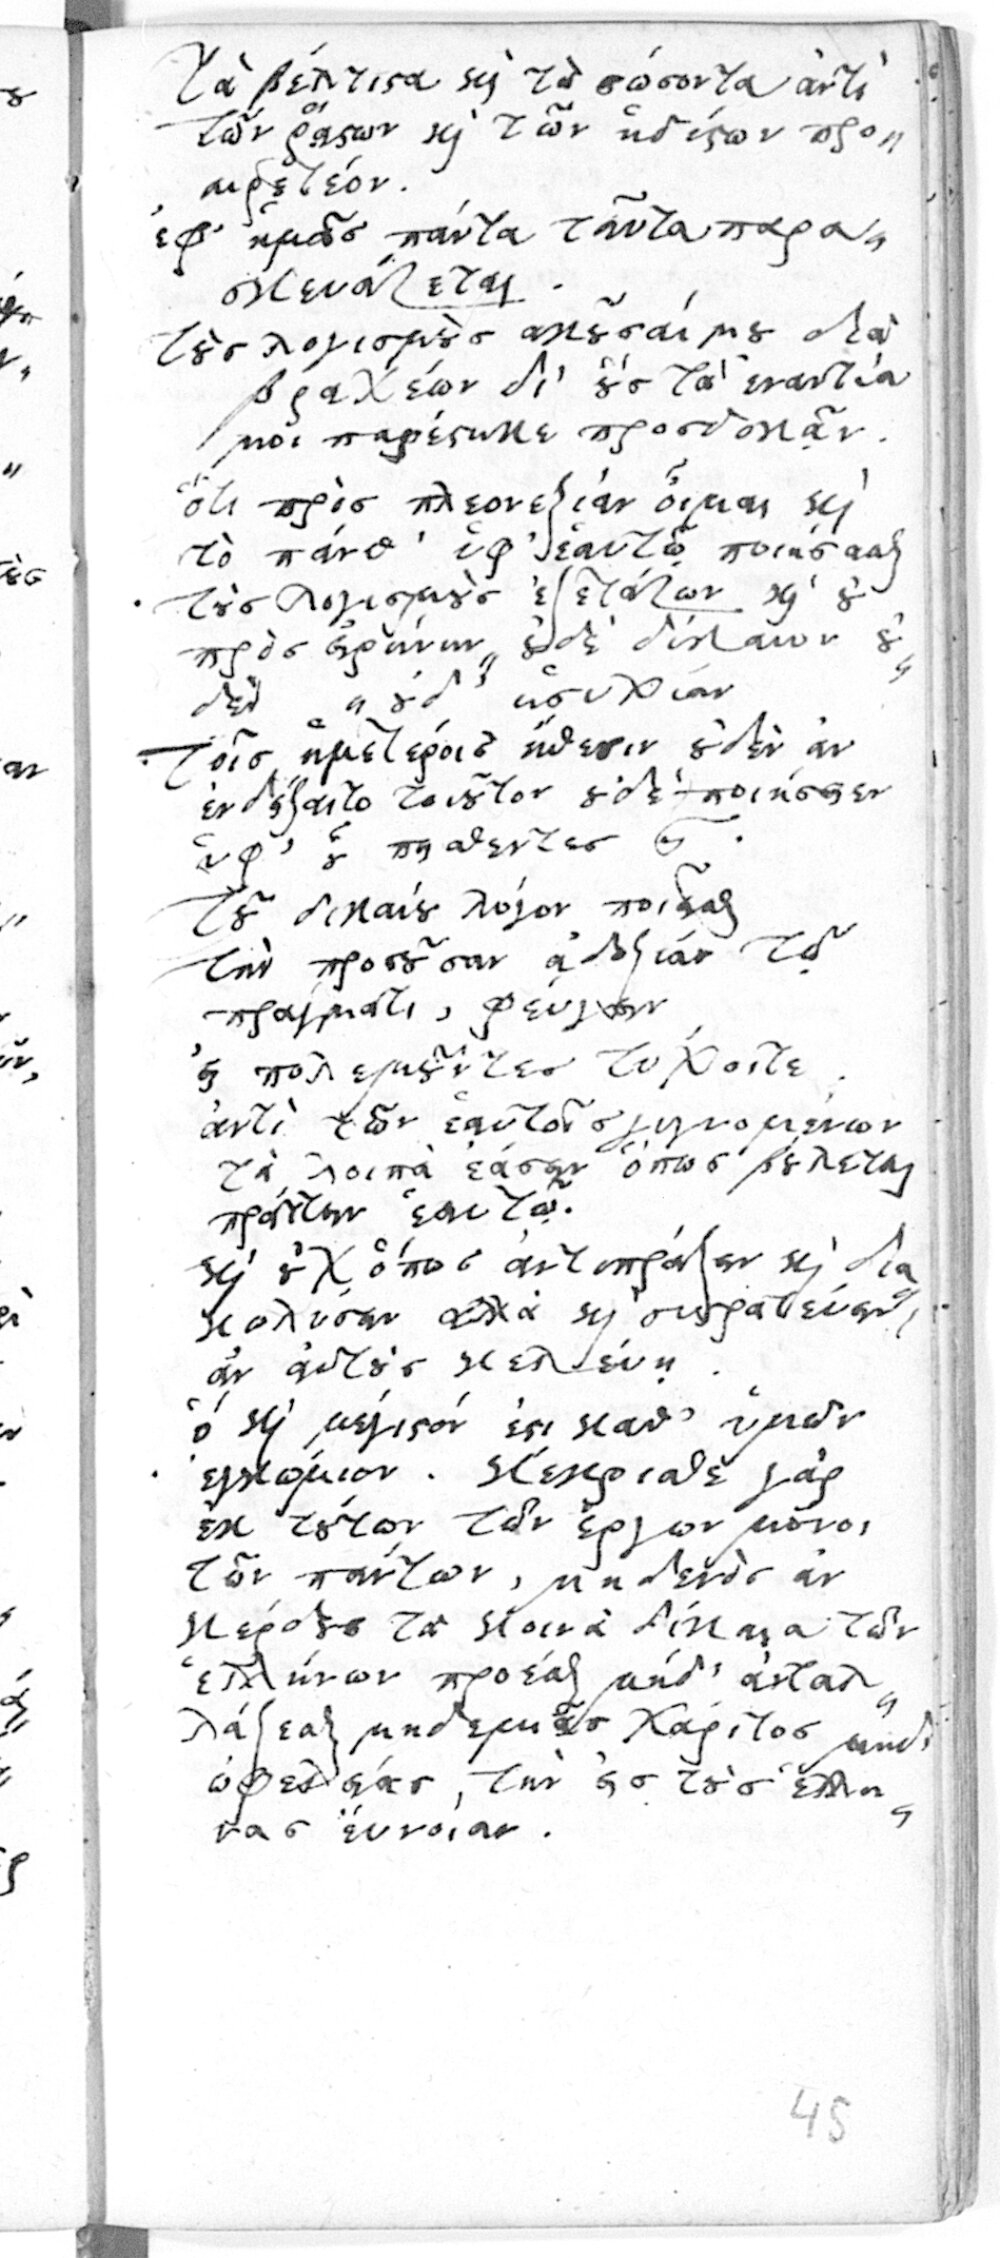 τὰ βέλτιστα καὶ τὰ σώσοντα ἀντὶ
τῶν ῥᾴστων καὶ τῶν ἡδίστων προ〃
αιρετέον.
ἐφ' ἡμᾶς πάντα ταῦτα παρα〃
σκευάζεται.
τοὺς λογισμοὺς ἀκοῦσαί μου διὰ
βραχέων δι' οὓς τὰ ἐναντία
μοι παρέστηκε προσδοκᾷν.
ὅτι πρὸς πλεονεξίαν οἶμαι καὶ
τὸ πάνθ' ὑφ' ἑαυτῷ ποιήσασθαι
τοὺς λογισμοὺς ἐξετάζων καὶ οὐ
πρὸς εἰρήνην οὐδὲ δίκαιον οὐ〃
δὲν 〃 οὐδ' ἡσυχίαν
τοῖς ἡμετέροις ἤθεσιν οὐδὲν ἂν
ἐνδείξαιτο τοιοῦτον οὐδὲ ποιήσειεν
ὑφ' οὗ πεισθέντες
τοῦ δικαίου λόγον ποιεῖσθαι
τὴν προσοῦσαν ἀδοξίαν τῷ
πράγματι, φεύγειν
εἰ πολεμοῦντες τύχοιτε.
ἀντὶ τῶν ἑαυτοῖς γιγνομένων
τὰ λοιπὰ ἐάσειν ὅπως βούλεται
πράττειν ἑαυτῷ.
καὶ οὐχ ὅπως ἀντιπράξειν καὶ δια
κωλύσειν ἀλλὰ καὶ συστρατεύειν,
ἂν αὐτοὺς κελεύῃ.
ὃ καὶ μέγιστόν ἐστι καθ' ὑμῶν
ἐγκώμιον. κέκρισθε γὰρ
ἐκ τούτων τῶν ἔργων μόνοι
τῶν πάντων, μηδενὸς ἂν
κέρδους τὰ κοινὰ δίκαια τῶν
ἑλλήνων προέσθαι μήδ' ἀνταλ〃
λάξεσθαι μηδεμιᾶς χάριτος μηδ'
ὠφελείας, τὴν εἰς τοὺς ἕλλη〃
νας εὔνοιαν.
45